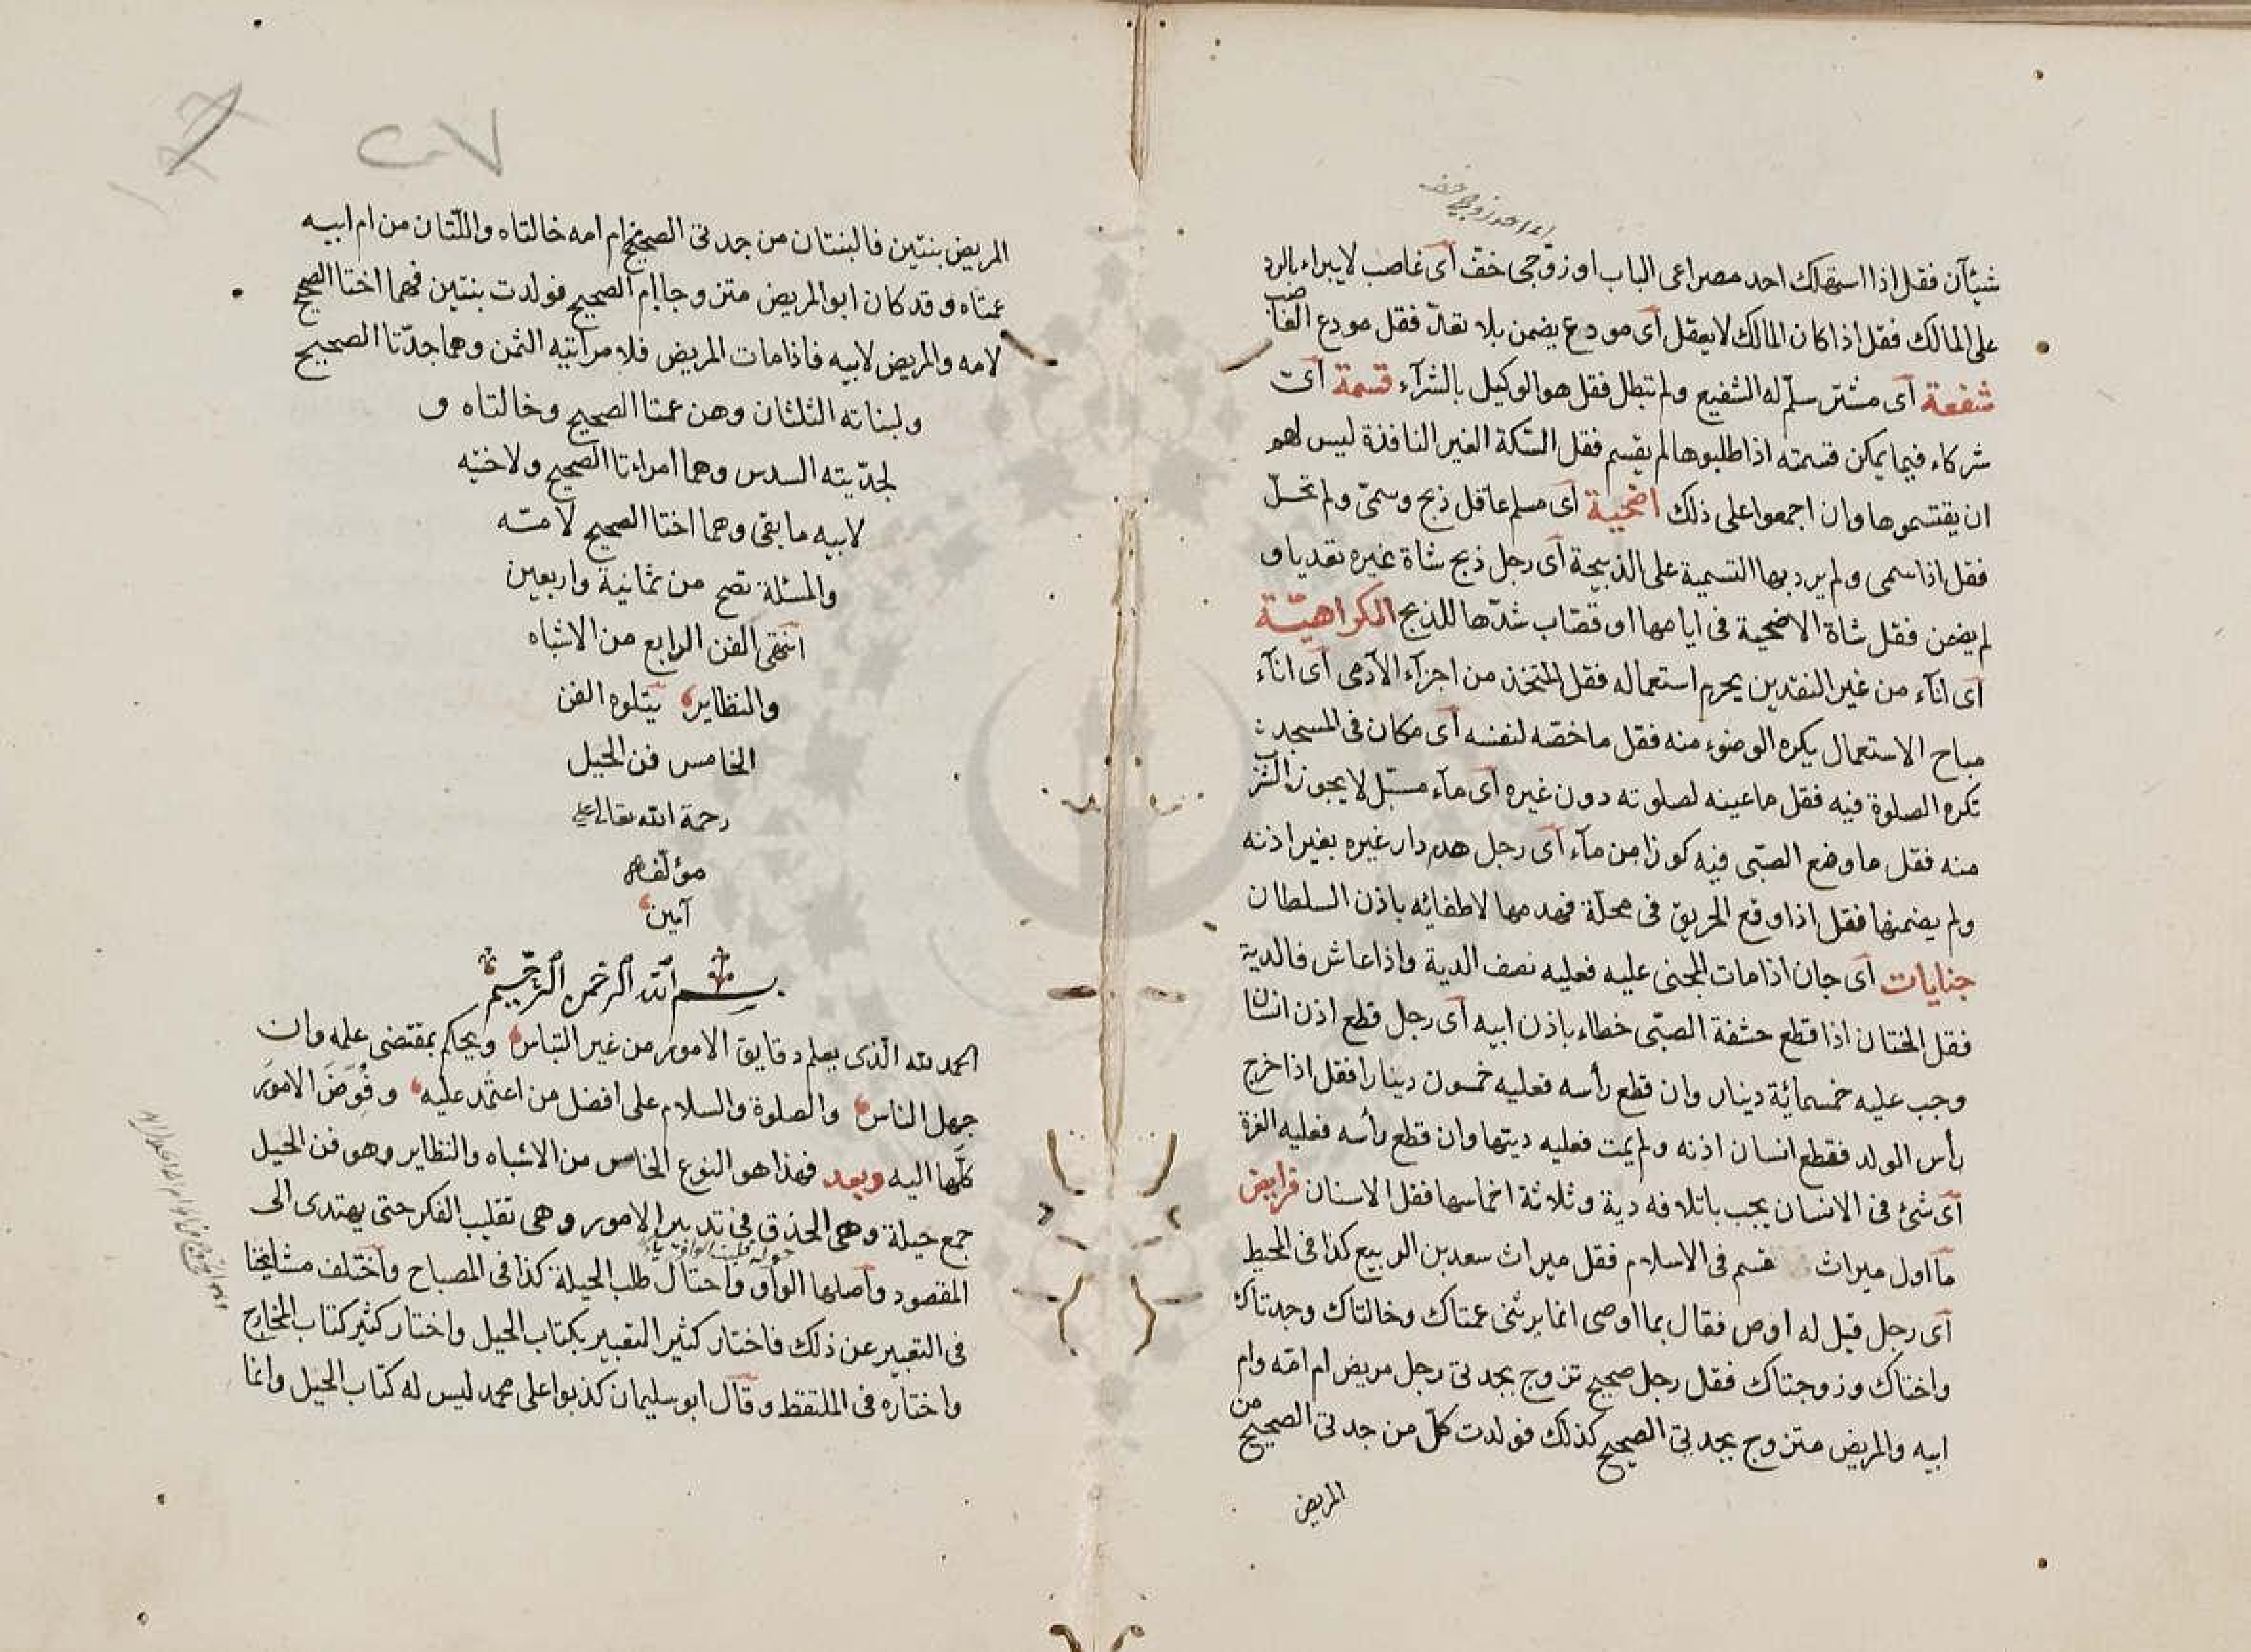 شيئآن فقل اذا استهلك احد مصراعى الباب او زوجى خف آى غاصب لا يبراء بالرد
على المالك فقل اذا كان المالك لا يعقل آى مودع يضمن بلا تعدّ فقل مودع الغاصب
شفعة آى مشتر سلّم له الشفيع ولم تبطل فقل هو الوكيل بالشرآء قسمة آى
شركاء فيما يمكن قسمته اذا طلبوها لم يقسم فقل السّكة الغير النافذة ليس لهو
ان يقتسموها وان اجمعوا على ذلك اضحية آى مسلم عاقل ذبح وسمىّ ولم تحلّ
فقل اذا سمى ولم يرد بها التسمية على الذبيحة آى رجل ذبح شاة غيره تعديا و
لم يضمن فقل شاة الاضحية فى ايامها او قصّاب شدّها للذبح الكراهيّة
آى انآء من غير النقدين يحرم استعماله فقل المتخذ من اجزآء الآدمى آى انآء
مباح الاستعمال يكره الوضوء منه فقل ما خصّه لنفسه آى مكان فى المسجد
تكره الصلوة فيه فقل ما عينه لصلوته دون غيره آى مآء مسبّل لا يجوز الشرب
منه فقل ما وضع الصبّى فيه كوزا من مآء آى رجل هدم دار غيره بغير اذنه
ولم يضمنها فقل اذا وقع الحريق فى محلّة فهدمها لاطفائه باذن السلطان
جنايات آى جان اذا مات المجنى عليه فعليه نصف الدية واذا عاش فالدية
فقل الختان اذا قطع حشفة الصبّى خطاء باذن ابيه آى رجل قطع اذن انسان
وجب عليه خمسمائة دينار وان قطع رأسه فعليه خمسون دينارا فقل اذا خرج
رأس الولد فقطع انسان اذنه ولم يمت فعليه ديتها وان قطع رأسه فعليه الغرة
آى شئ فى الانسان يجب باتلافه دية وثلاثة اخماسها فقل الاسنان فرايض
مآ اول ميراث قسم فى الاسلام فقل ميراث سعد بن الربيع كذا فى المحيط
آى رجل قيل له اوص فقال بما اوصى انما يرثنى عمتاك وخالتاك وجدتاك
واختاك وزوجتاك فقل رجل صحيح تزوج بجدتى رجل مريض ام امّه وام
ابيه والمريض متزوج بجدتى الصحيح كذلك فولدت كلّ من جدتى الصحيح من
المريض
المريض بنتين فالبنتان من جدتى الصحيح ام امه خالتاه واللّتان من ام ابيه
عمتاه وقد كان ابو المريض متزوجا بام الصحيح فولدت بنتين فهما اختا الصحيح
لامه والمريض لابيه فاذا مات المريض فلامراتيه الثمن وهما جدّتا الصحيح
ولبناته الثلثان وهن عمتا الصحيح وخالتاه و
لجدّيته السدس وهما امراءتا الصحيح ولاختيه
لابيه ما بقى وهما اختا الصحيح لامّه
والمسئلة تصح من ثمانية واربعين
انتهى الفن الرابع من الاشباه
والنظاير يتلوه الفن
الخامس فن الحيل
رحمة الله تعالى على
مؤلفه
آمين
بسم الله الرحمن الرحيم
الحمد لله الّذى يعلم دقايق الامور من غير التباس ويحكم بمقتضى علمه وان
جهل الناس والصلوة والسلام على افضل من اعتمد عليه وفوض الامور
كلّها اليه وبعد فهذا هو النوع الخامس من الاشباه والنظاير وهو فن الحيل
جمع حيلة وهى الحذق فى تدبير الامور وهى تقليب الفكر حتى يهتدى الى
المقصود وآصلها الواو واحتال طلب الحيلة كذا فى المصباح واختلف مشايخنا
فى التعبير عن ذلك فاختار كثير التعبير بكتاب الحيل واختار كثير كتاب المخارج
واختاره فى الملتقط وقال ابو سليمان كذبوا على محمد ليس له كتاب الحيل وانما